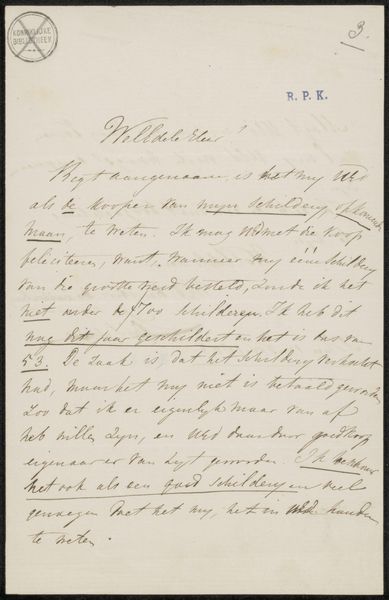 KONINKLIJKE
BIBLIOTHEEK
3
R. P. K.
WelEdele Heer!
Regt aangenaam is het my UEd
als de kooper van myn Schildery, opkomende
maan, te weten. Ik mag UEd met die koop
feliciteren, want, wanneer my één Schildery
van die grootte werd besteld, zoude ik het
niet onder de ƒ 700 schilderen. Ik heb dit
nog dit jaar geschildert en het is dus van
53. De zaak is, dat het Schildery verkocht
had, maar het my niet is betaald geworden
Zoo dat ik er eigenlyk maar van af
heb willen zyn, en UEd daardoor goedkoop
eigenaar er van zyt geworden. Ik
het ook als een goed Schildery en veel
genoegen doet het my, het in UEd handen
te weten.